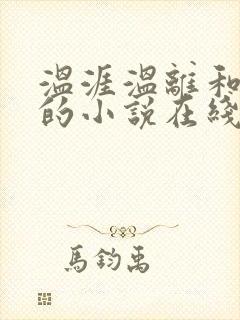 温涯温離和
的小說在綫
馬鈞禹